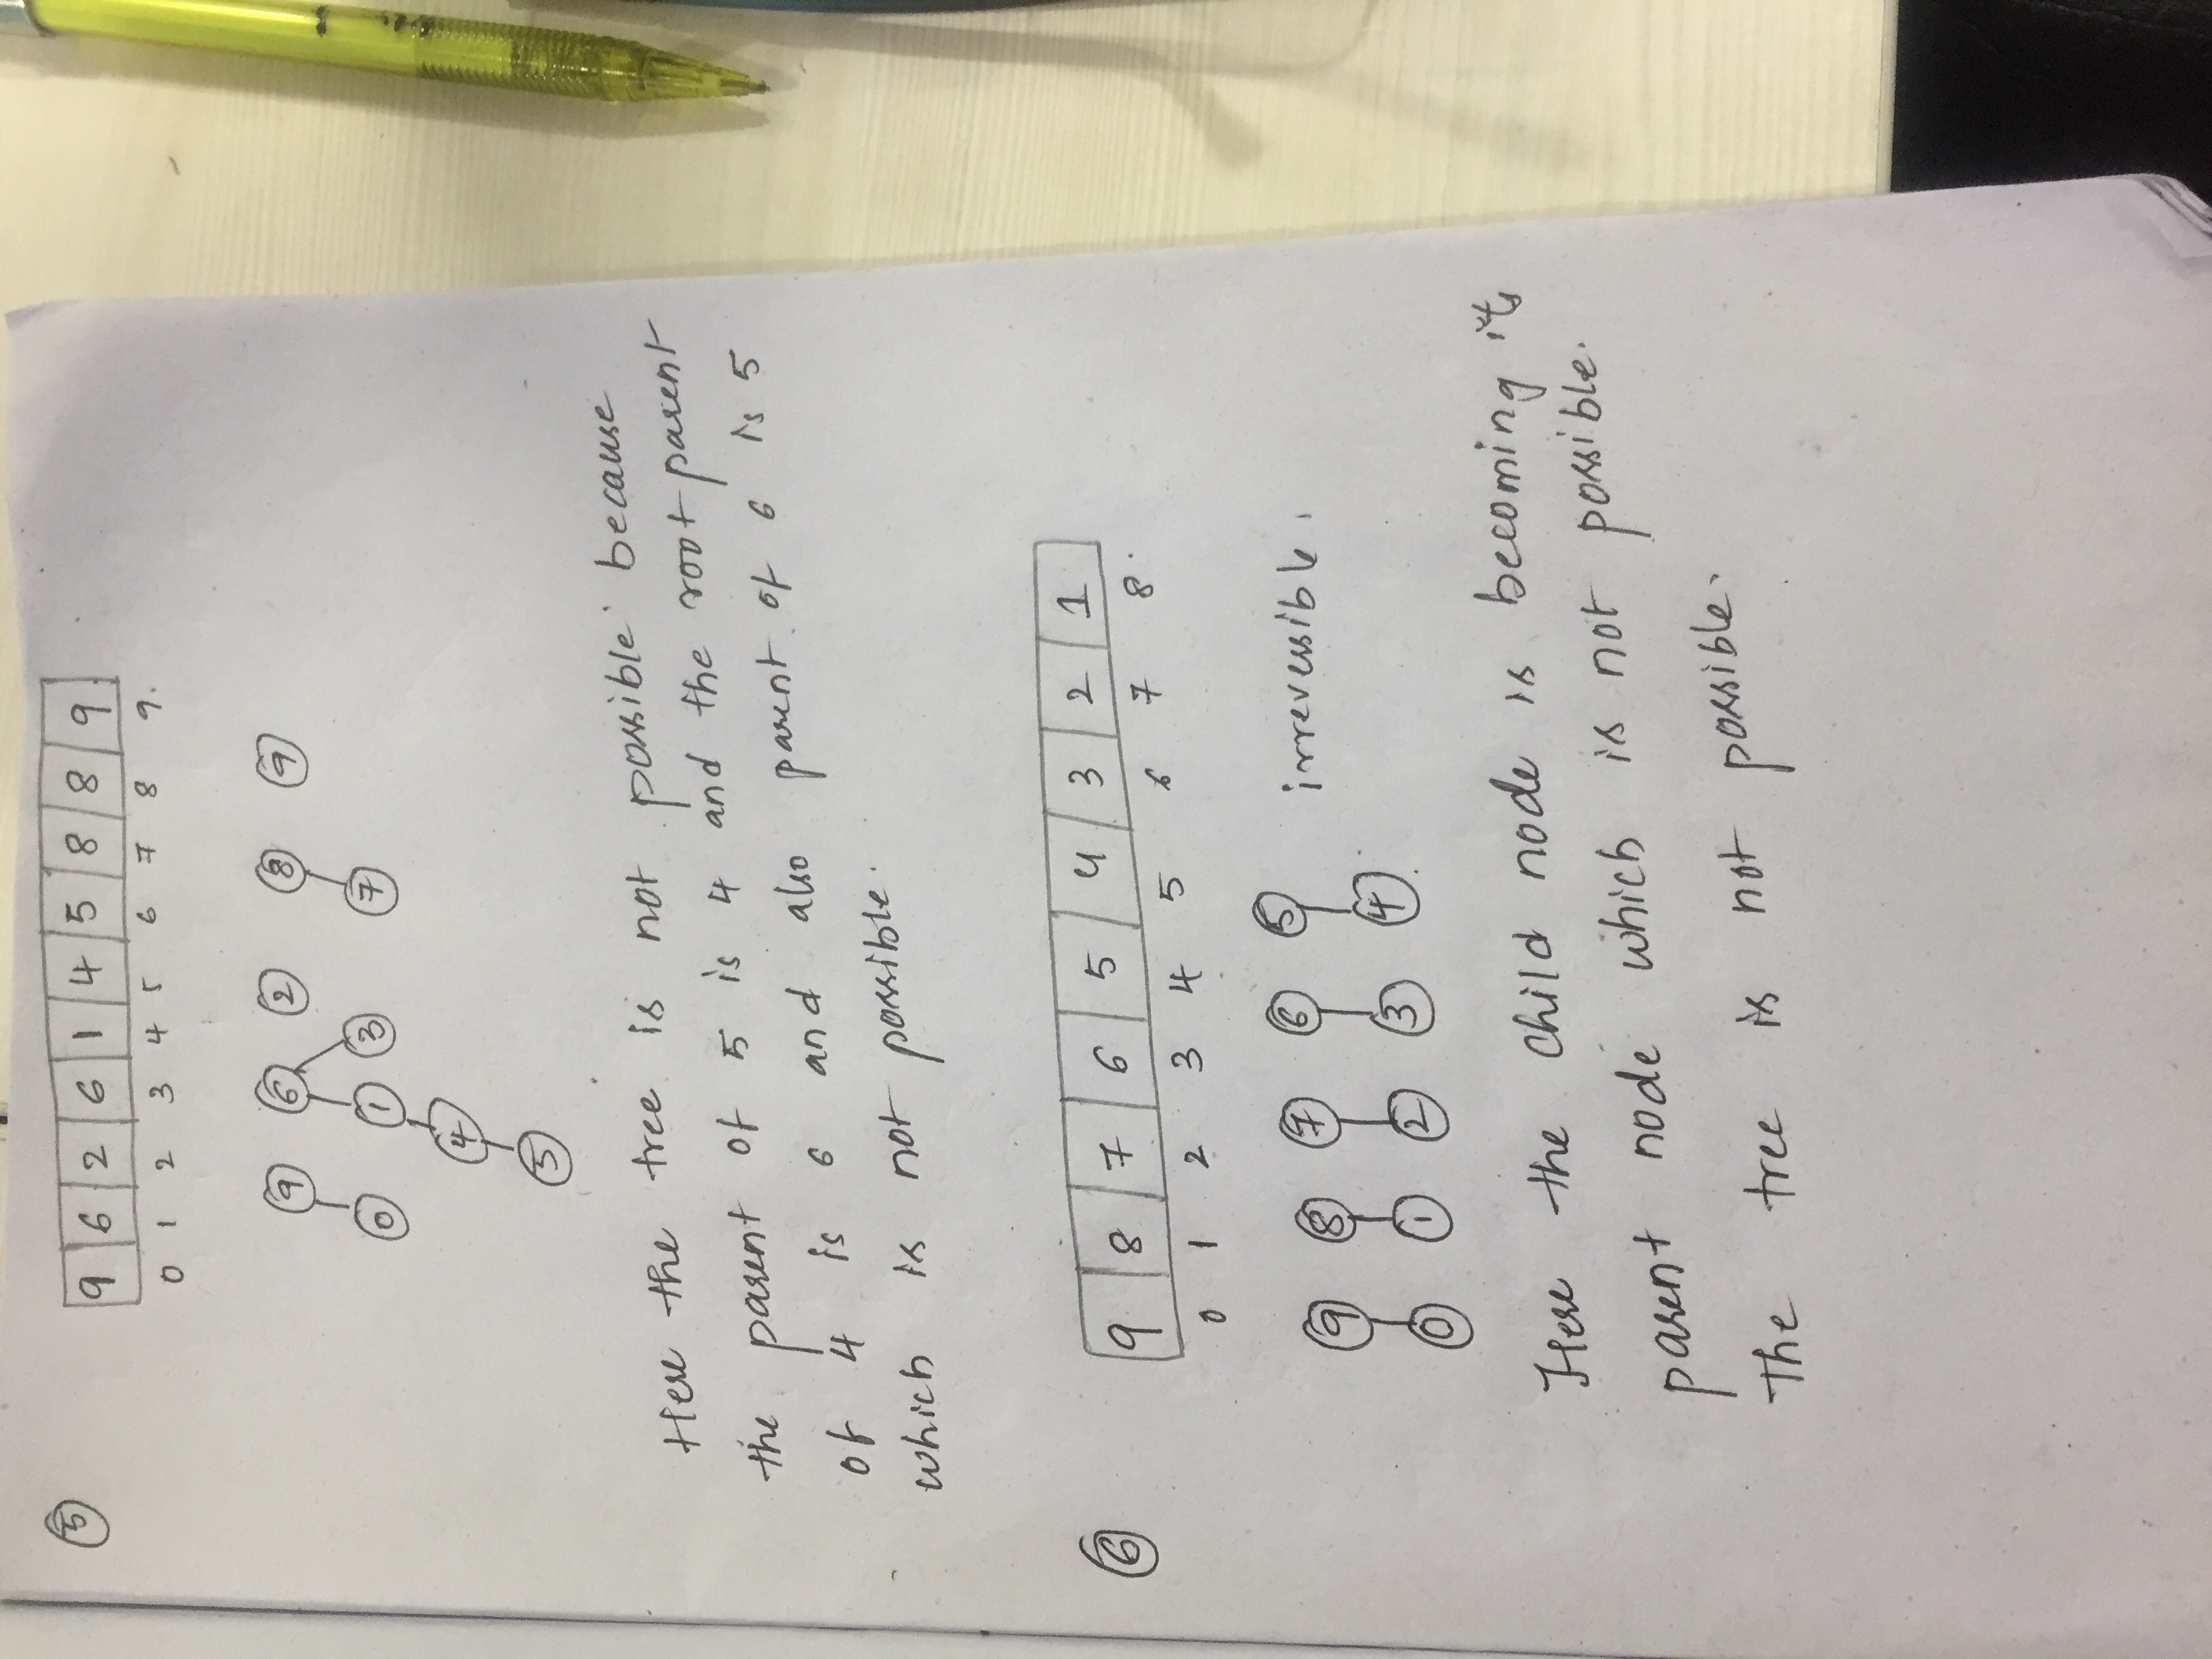 5
9 6 2 6 1 4 5 8 8 9
0 1 2 3 4 5 6 7 8 9.
9 6 2 8 9
0 1 3 7
4
5
Here the tree is not possible because
the parent of 5 is 4 and the root parent
of 4 is 6 and also parent of 6 is 5
which is not possible.
6
9 8 7 6 5 4 3 2 1
0 1 2 3 4 5 6 7 8.
9 8 7 6 5 irreversible.
0 1 2 3 4
Here the child node is becoming its
parent node which is not possible.
The tree is not possible.